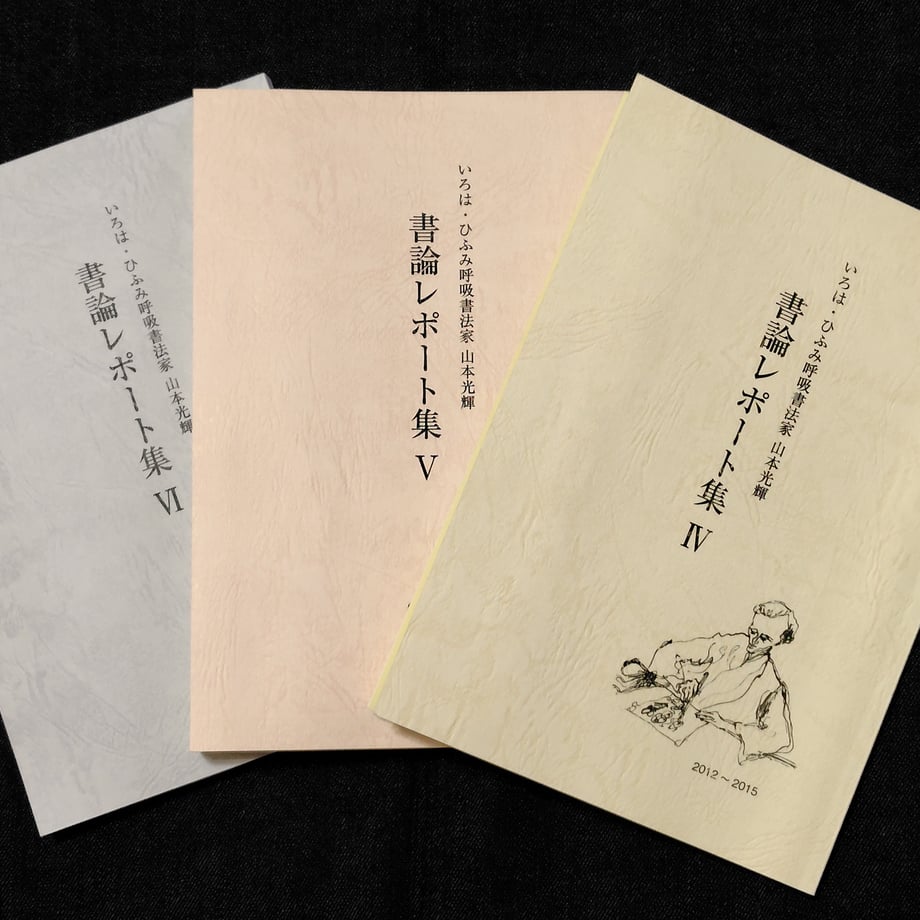 いろは・ひふみ呼吸書法家 山本光輝
書論レポート集 Ⅵ
いろは・ひふみ呼吸書法家 山本光輝
書論レポート集 Ⅴ
いろは・ひふみ呼吸書法家 山本光輝
書論レポート集 Ⅳ
2012～2015